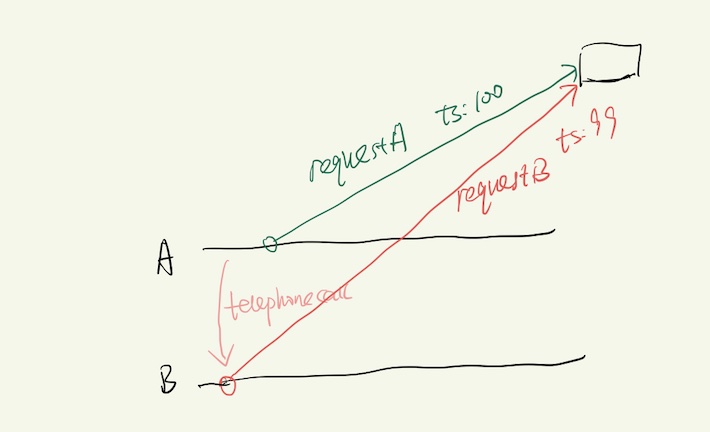 requestA ts:100
requestB ts:99
A
telephone call
B